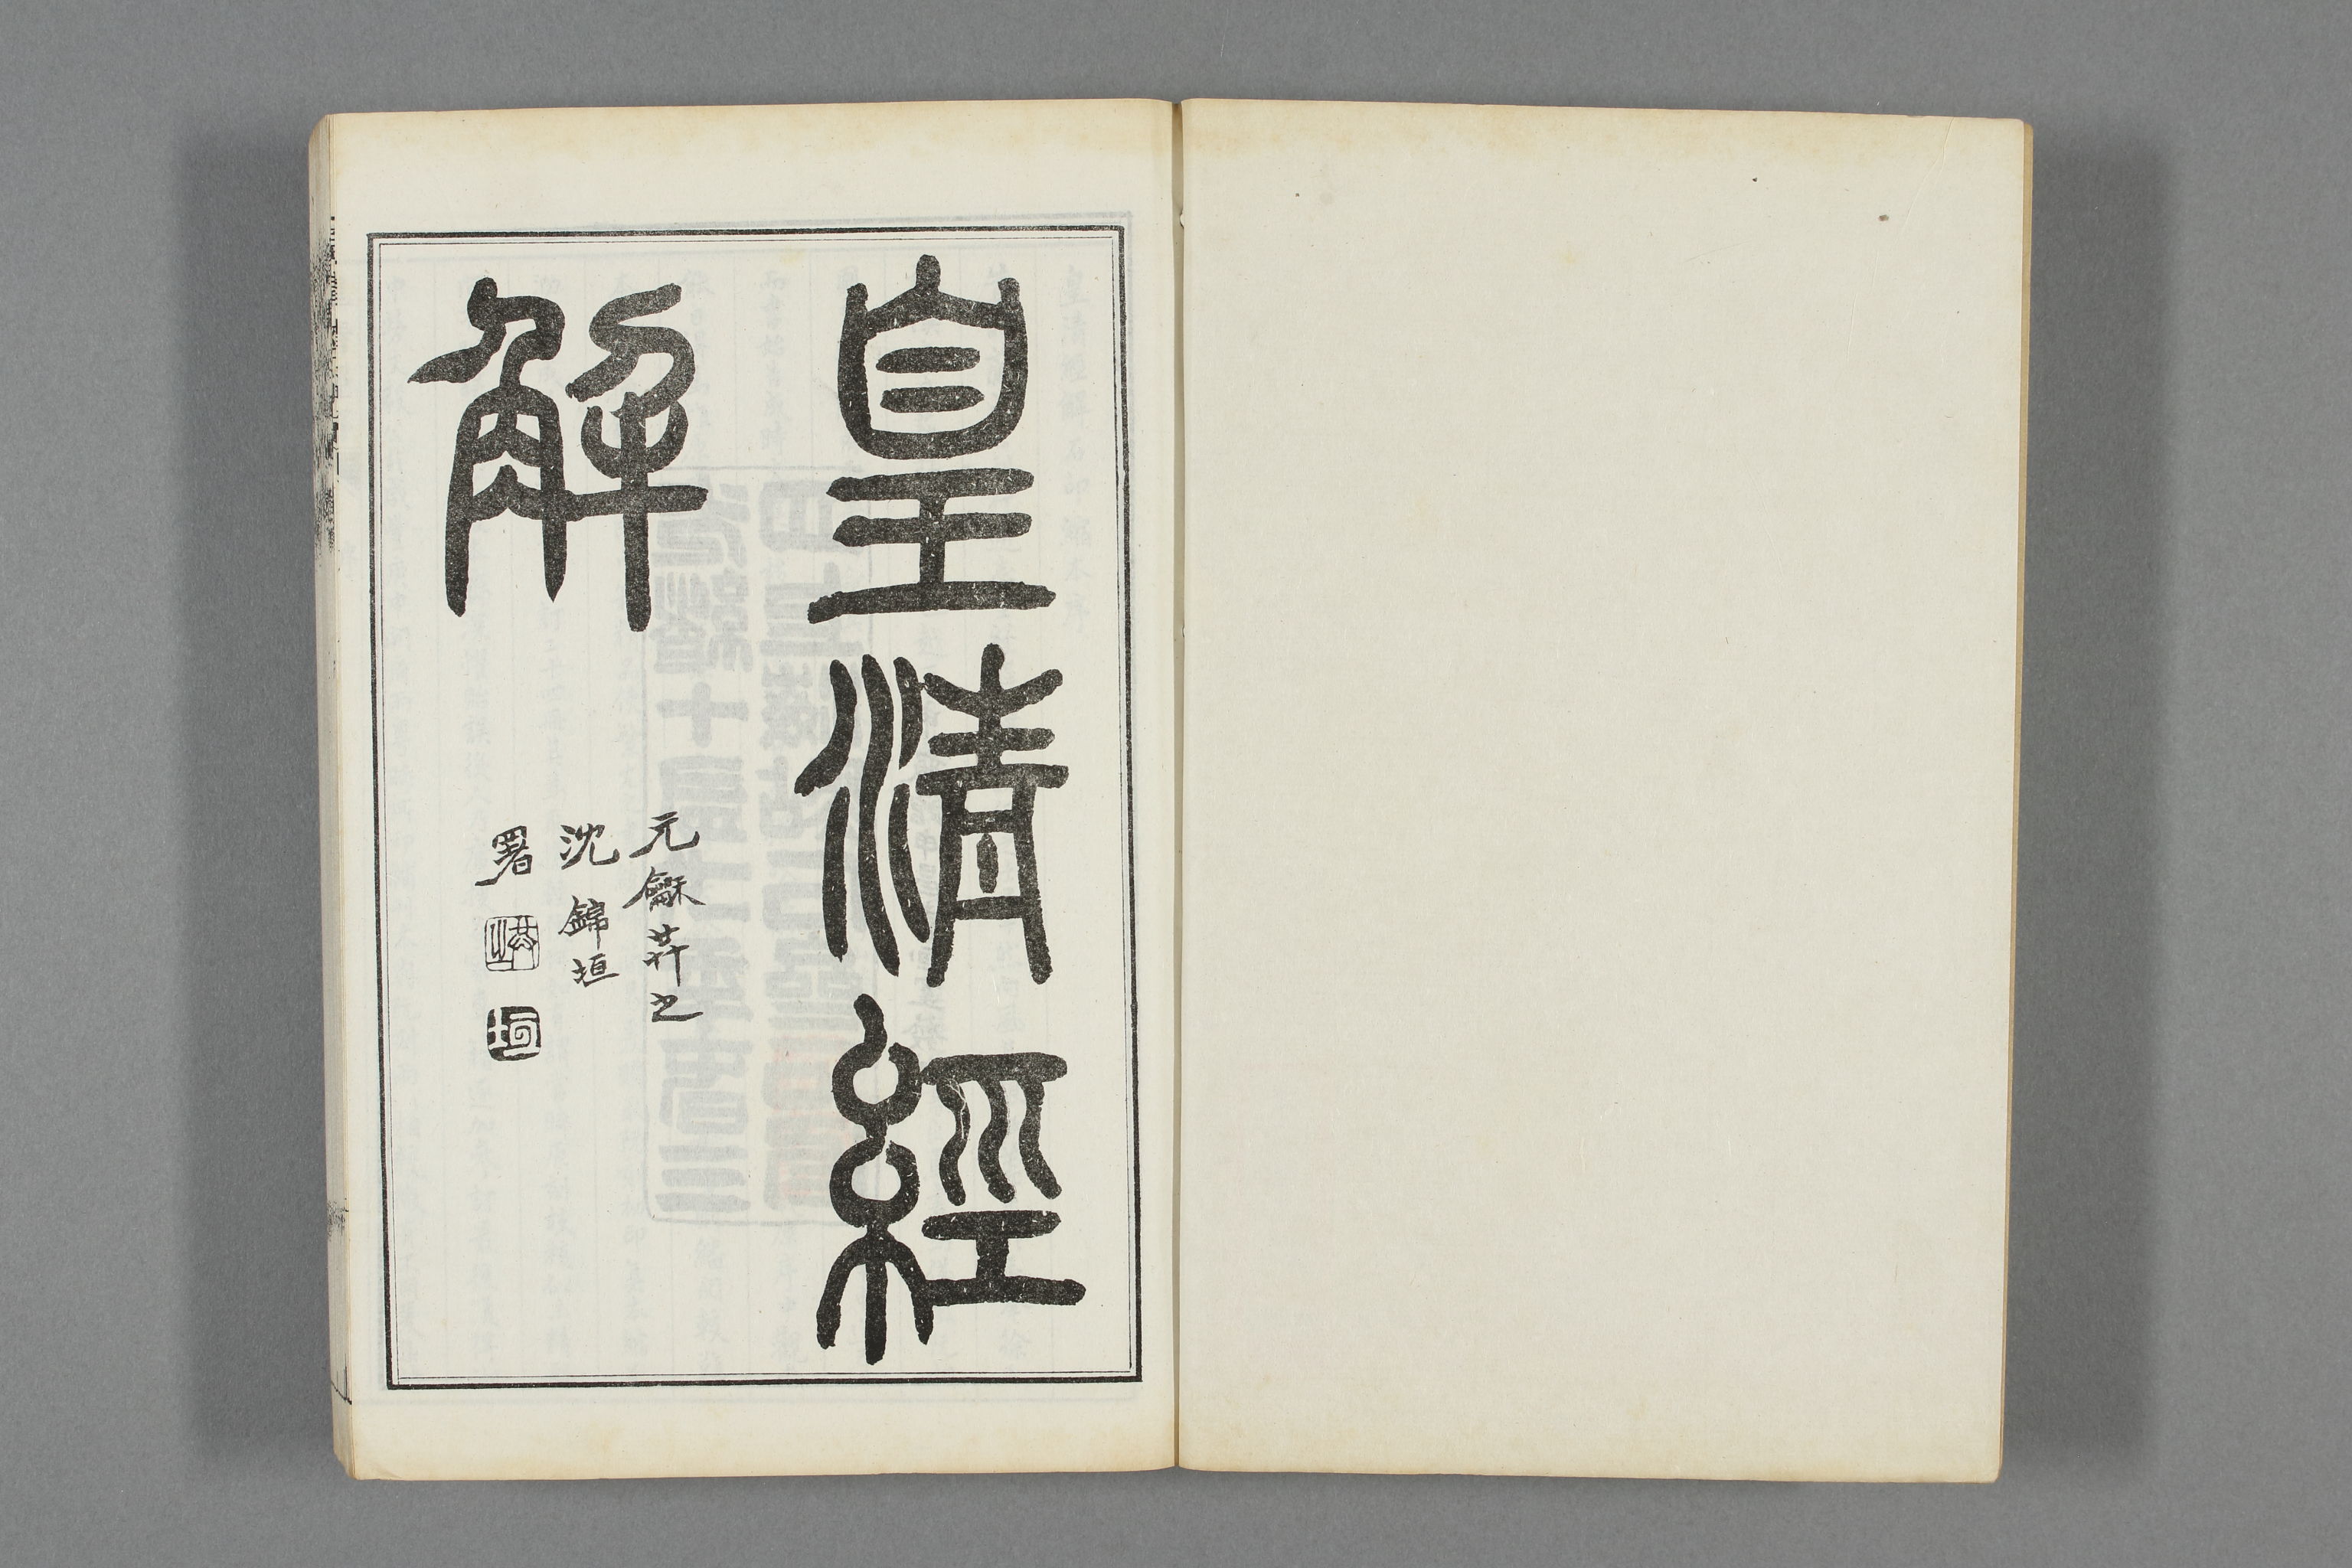 皇清經
解
元龢之
沈錦垣
署
垣